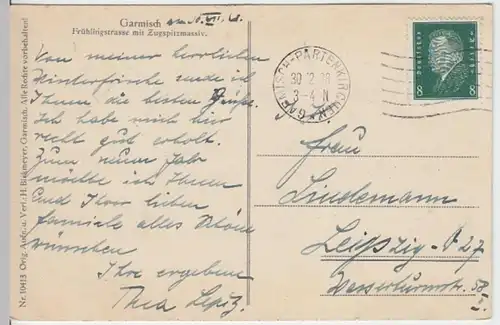 Garmisch am 30. XII. 28.
Frühlingstrasse mit Zugspitzmassiv.
Von meiner herrlichen
Winterfrische sende ich
Ihnen die besten Grüße.
Ich habe mich hier
recht gut erholt.
Zum neuen Jahr
möchte ich Ihnen
und Ihrer lieben
Familie alles Schöne
wünschen
Ihre ergebene
Thea
Nr. 10415 Orig.-Aufn. u. Verl.: H. Birkmeyer, Garmisch. Alle Rechte vorbehalten!
GARMISCH-PARTENKIRCHEN
30.12.28
3-4 N
Deutsches Reich
8 8
Frau
Lindemann
Leipzig-O 27
Wasserturmstr. 58
I.